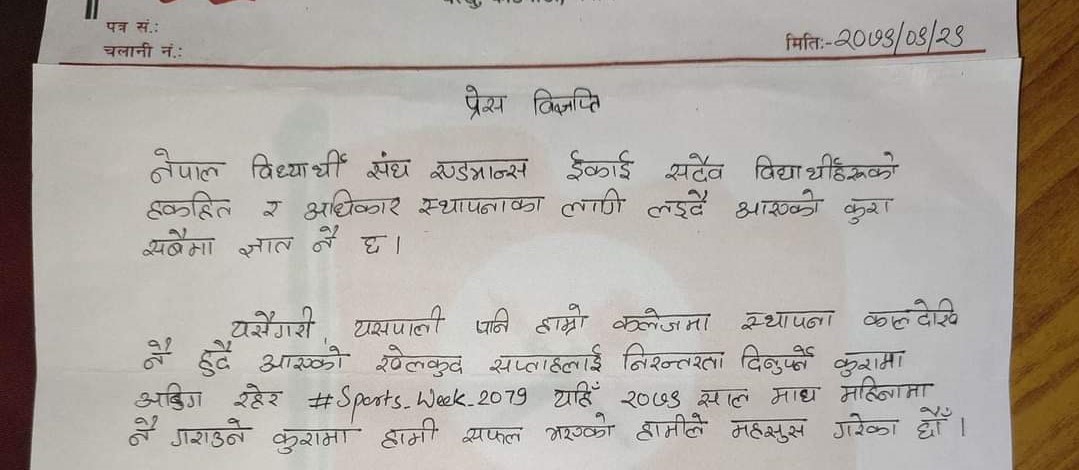 पत्र सं.:
चलानी नं.:
मितिः-२०७९/०९/२९
प्रेस विज्ञप्ति
नेपाल विध्यार्थी संघ एडभान्स ईकाई सदैव विद्यार्थीहरूको
हकहित र अधिकार स्थापनाका लागी लड्दै आएको कुरा
सबैमा ज्ञात नै छ।
यसैगरी, यसपाली पनि हाम्रो कलेजमा स्थापना कालदेखि
नै हुदै आएको खेलकुद सप्ताहलाई निरन्तरता दिनुपर्ने कुरामा
अडिग रहेर #Sports_Week_2079 यहिँ २०७९ साल माघ महिनामा
नै गराउने कुरामा हामी सफल भएको हामीले महसुस गरेका छौँ ।